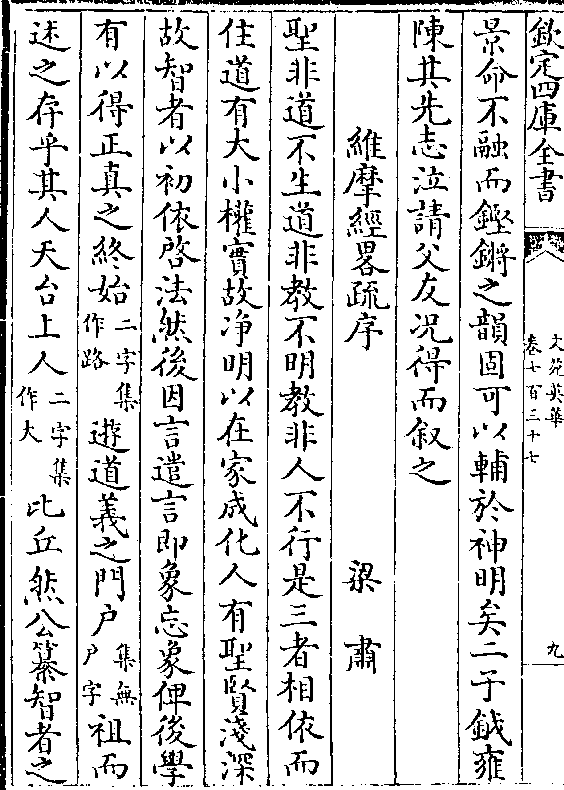 欽定四庫全書
文苑英華
卷七百三十七
九
景命不融而鏗鏘之韻固可以輔於神明矣二子鉞雍
陳其先志泣請父友况得而叙之
維摩經畧疏序 梁肅
聖非道不生道非教不明教非人不行是三者相依而
住道有大小權實故净明以在家成化人有聖賢淺深
故智者以初依啓法然後因言遣言即象忘象俾後學
有以得正真之終始二字集作路遊道義之門户集無户字祖而
述之存乎其人天台上人二字集作大比丘然公纂智者之